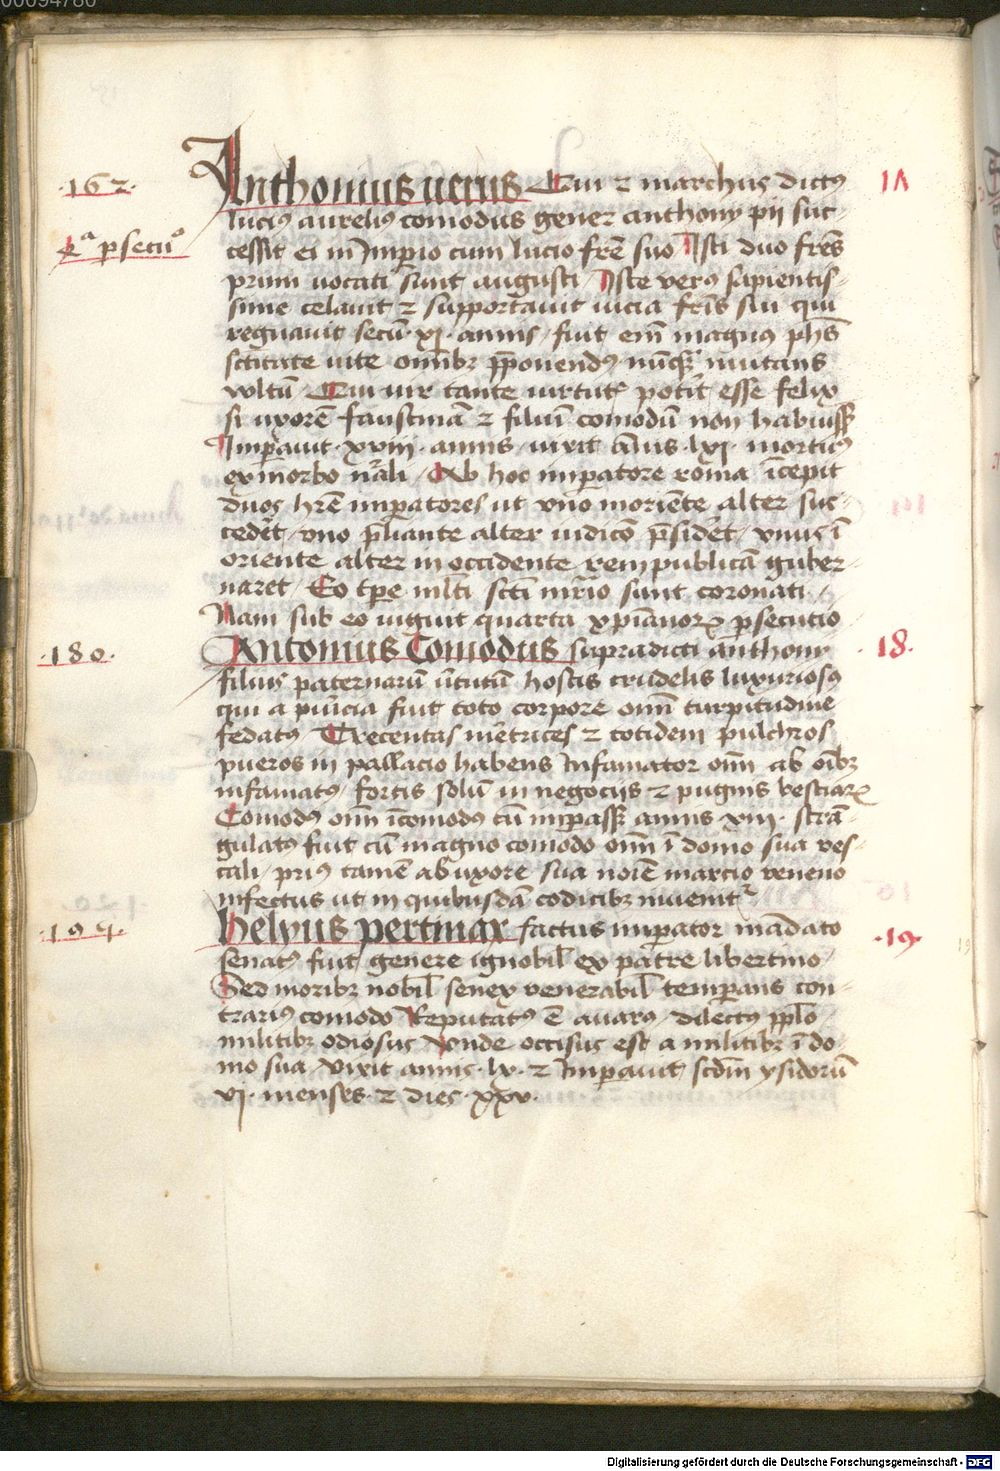 00094780
·162·
Anthonius uerus Qui ⁊ marchus dictꝰ
17
luciꝰ aureliꝰ comodus gener anthony pii suc-
4ᵃ psecuᵒ
cessit ei in Imperio cum lucio fre͞ suo Isti duo fre͞s
primi uocati sunt augusti / Iste verꝰ sapientis-
sime celauit ⁊ supportauit uicia fris͞ sui qui
regnauit secu͞ · xj · annis / fuit em͞ magnꝰ phs͞
sctitate uite omibꝫ p͞ponendꝰ / nu͞qꝫ mutans
vultu͞ / Qui uir tante uirtutꝭ potit͞ esse felix
si uxore͞ faustina͞ ⁊ filiu͞ comodu͞ non habuissꝫ
Imperauit · xviii · annis · uixit a͞nis · lxj · mortuꝰ
ex morbo nr͞ali / Ab hoc imperatore roma i͞cepit
duos hre͞ imperatores ut vno morie͞te alter suc-
cedet͞ / vno pl͞iante alter iudico͞ p͞sidet͞ / vnus i͞
oriente alter in occidente rempublica͞ guber-
naret / Eo tpe͞ mlt͞i sct͞i mr͞io sunt coronati /
Nam sub eo uiguit quarta xp͞ianorꝝ persecutio
·180·
Antonius Comodus supradicti anthony
·18·
filius paternaru͞ u͞tutu͞ hostis crudelis luxuriosꝰ
qui a pu͞icia fuit toto corpore om͞i turpitudine
fedatꝰ Trecentas me͞trices ⁊ totidem pulchros
pueros in pallacio habens Infamator om͞i ab oi͞bꝫ
infamatꝰ / fortis solu͞ in negociis ⁊ pugnis bestiarꝝ
Comodꝰ om͞i i͞comodꝰ cu͞ imperassꝫ annis xiii · stra͞-
gulatꝰ fuit cu͞ magno comodo om͞i i͞ domo sua ves-
tali / priꝰ tame͞ ab uxore sua noi͞e marcio veneno
infectus ut in quibusda͞ codicibꝫ inuenitr
·194·
helyus pertinax factus imperator ma͞dato
·19·
senatꝰ fuit genere ignobil͞ ex patre libertino /
Sed moribꝫ nobil͞ senex venerabil͞ temperans con-
trariꝰ comodo Reputatꝰ e͞ auarꝰ / dilectꝰ pplo͞
militibꝫ odiosus vnde occisus est a militibꝫ i͞ do-
mo sua / Vixit annis · lx · ⁊ Imperauit scdm͞ ysidoru͞
vj · menses · ⁊ dies · xxv ·
19
Digitalisierung gefördert durch die Deutsche Forschungsgemeinschaft - DFG